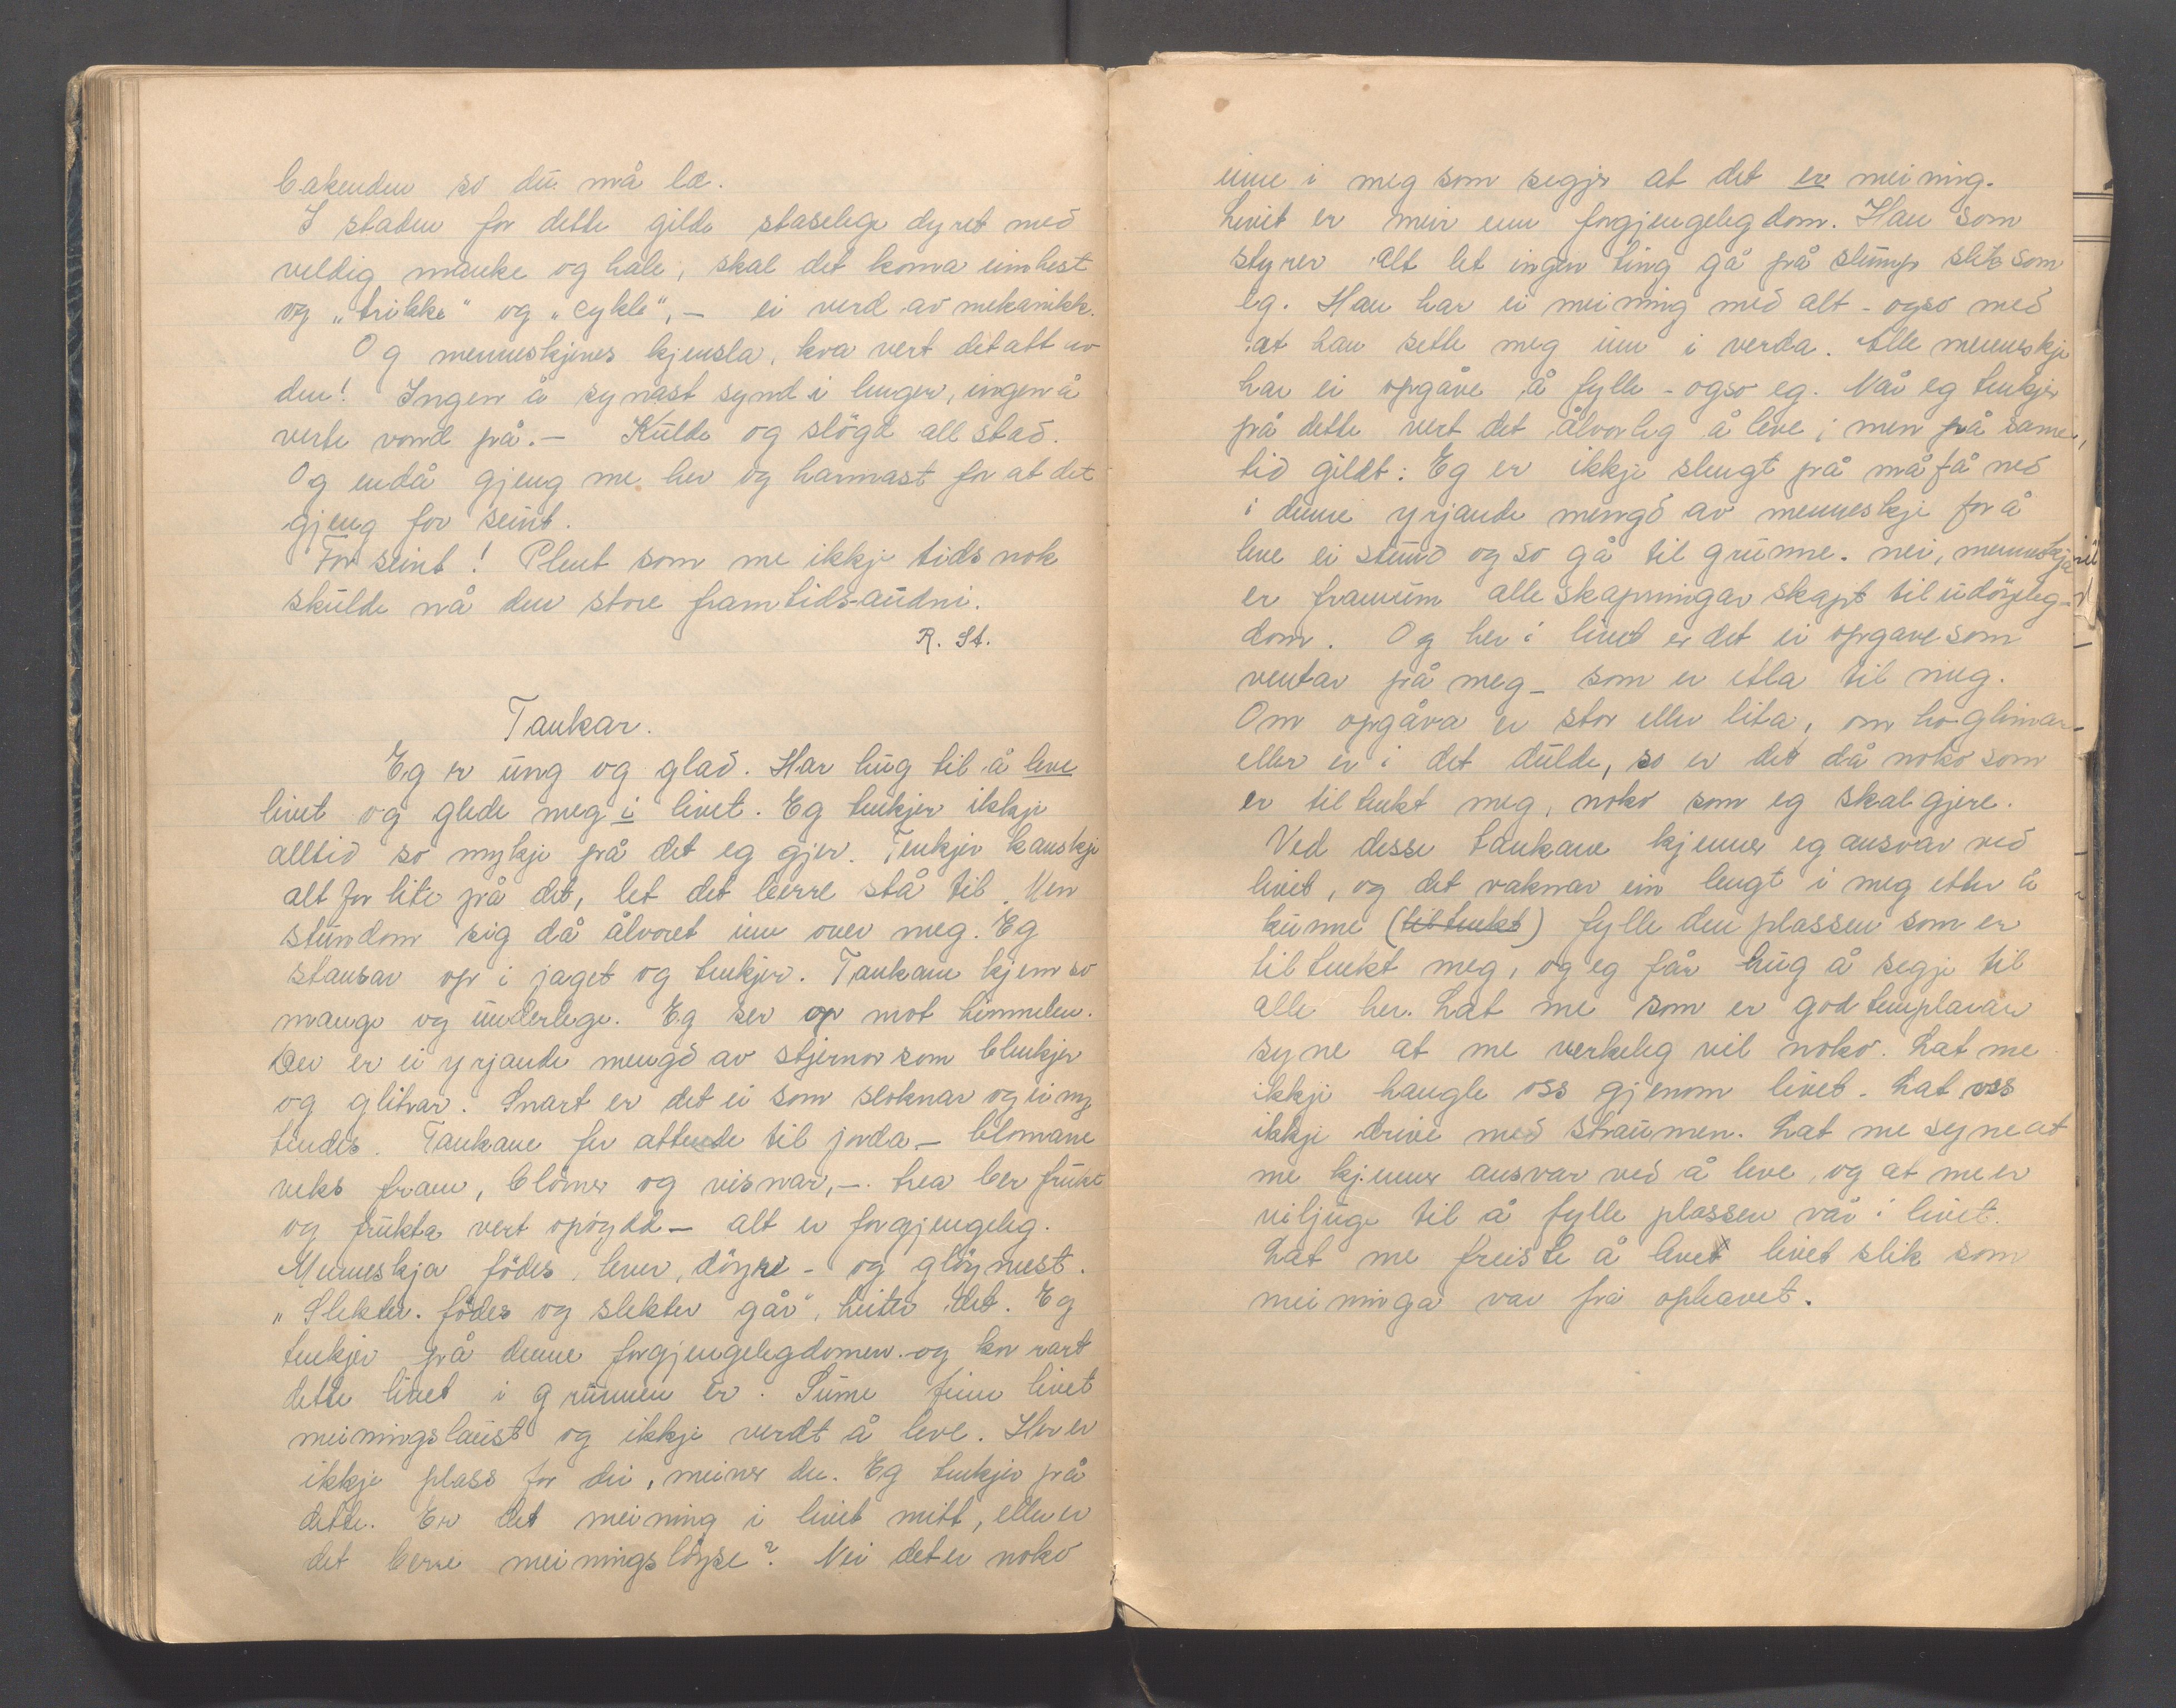 bakenden so du må læ.
I staden for dette gilde staselege dyret med
veldig manke og hale, skal det koma einhest
og „trikke" og „cykle", – ei verd av mekanikk.
Og menneskjenes kjensla, kva vert det att av
den! Ingen å synast synd i lenger, ingen å
verte vond på. – Kulde og slögd all stad.
Og endå gjeng me her og harmast for at det
gjeng for seint.
For seint! Plent som me ikkje tids nok
skulde nå den store framtids-audni.
R. St.
Tankar.
Eg er ung og glad. Har hug til å leve
livet og glede meg i livet. Eg tenkjer ikkje
alltid so mykje på det eg gjer. Tenkjer kanskje
alt for lite på det, let det berre stå til. Men
stundom sig då ålvoret inn over meg. Eg
stansar op i jaget og tenkjer. Tankane kjem so
mange og underlege. Eg ser op mot himmelen.
Der er ei yrjande mengd av stjernor som blenkjer
og glitrar. Snart er det ei som sloknar og ei ny
tendes. Tankane fer attende til jorda – blomane
veks fram, blömer og visnar, – trea ber frukt
og frukta vert opøydd – alt er forgjengeleg.
Menneskja födes, lever, döyre – og glöymest.
„Slekter födes og slekter går", heiter det. Eg
tenkjer på denne forgjengelegdomen og kor rart
dette livet i grunnen er. Sume finn livet
meiningslaust og ikkje verdt å leve. Her er
ikkje plass for dei, meiner dei. Eg tenkjer på
dette. Er det meining i livet mitt, eller er
det berre meiningslöyse? Nei det er noko
inne i meg som segjer at det er meining.
Livet er meir enn forgjengelegdom. Han som
styrer alt let ingen ting gå på slump slik som
eg. Han har ei meining med alt – ogso med
at han sette meg inn i verda. Alle menneskje
har ei opgåve å fylle – ogso eg. Når eg tenkjer
på dette vert det ålvorleg å leve; men på same
tid gildt: Eg er ikkje slengt på måfå ned
i denne yrjande mengd av menneskje for å
leve ei stund og so gå til grunne. nei, menneskja
er framum alle skapningar skapt til udöyeleg-
dom. Og her i livet er det ei opgave som
ventar på meg – som er etla til meg.
Om opgåva er stor eller lita, om ho glimar
eller er i det dulde, so er det då noko som
er tiltenkt meg, noko som eg skal gjere.
Ved desse tankane kjenner eg ansvar ved
livet, og det vaknar ein lengt i meg etter å
kunne (tiltenkt) fylle den plassen som er
tiltenkt meg, og eg får hug å segje til
alle her. Lat me som er godtemplarar
syne at me verkeleg vil noko. Lat me
ikkje hangle oss gjenom livet. Lat oss
ikkje drive med straumen. Lat me syne at
me kjenner ansvar ved å leve, og at me er
viljuge til å fylle plassen vår i livet.
Lat me freiste å leve livet slik som
meininga var frå ophavet.